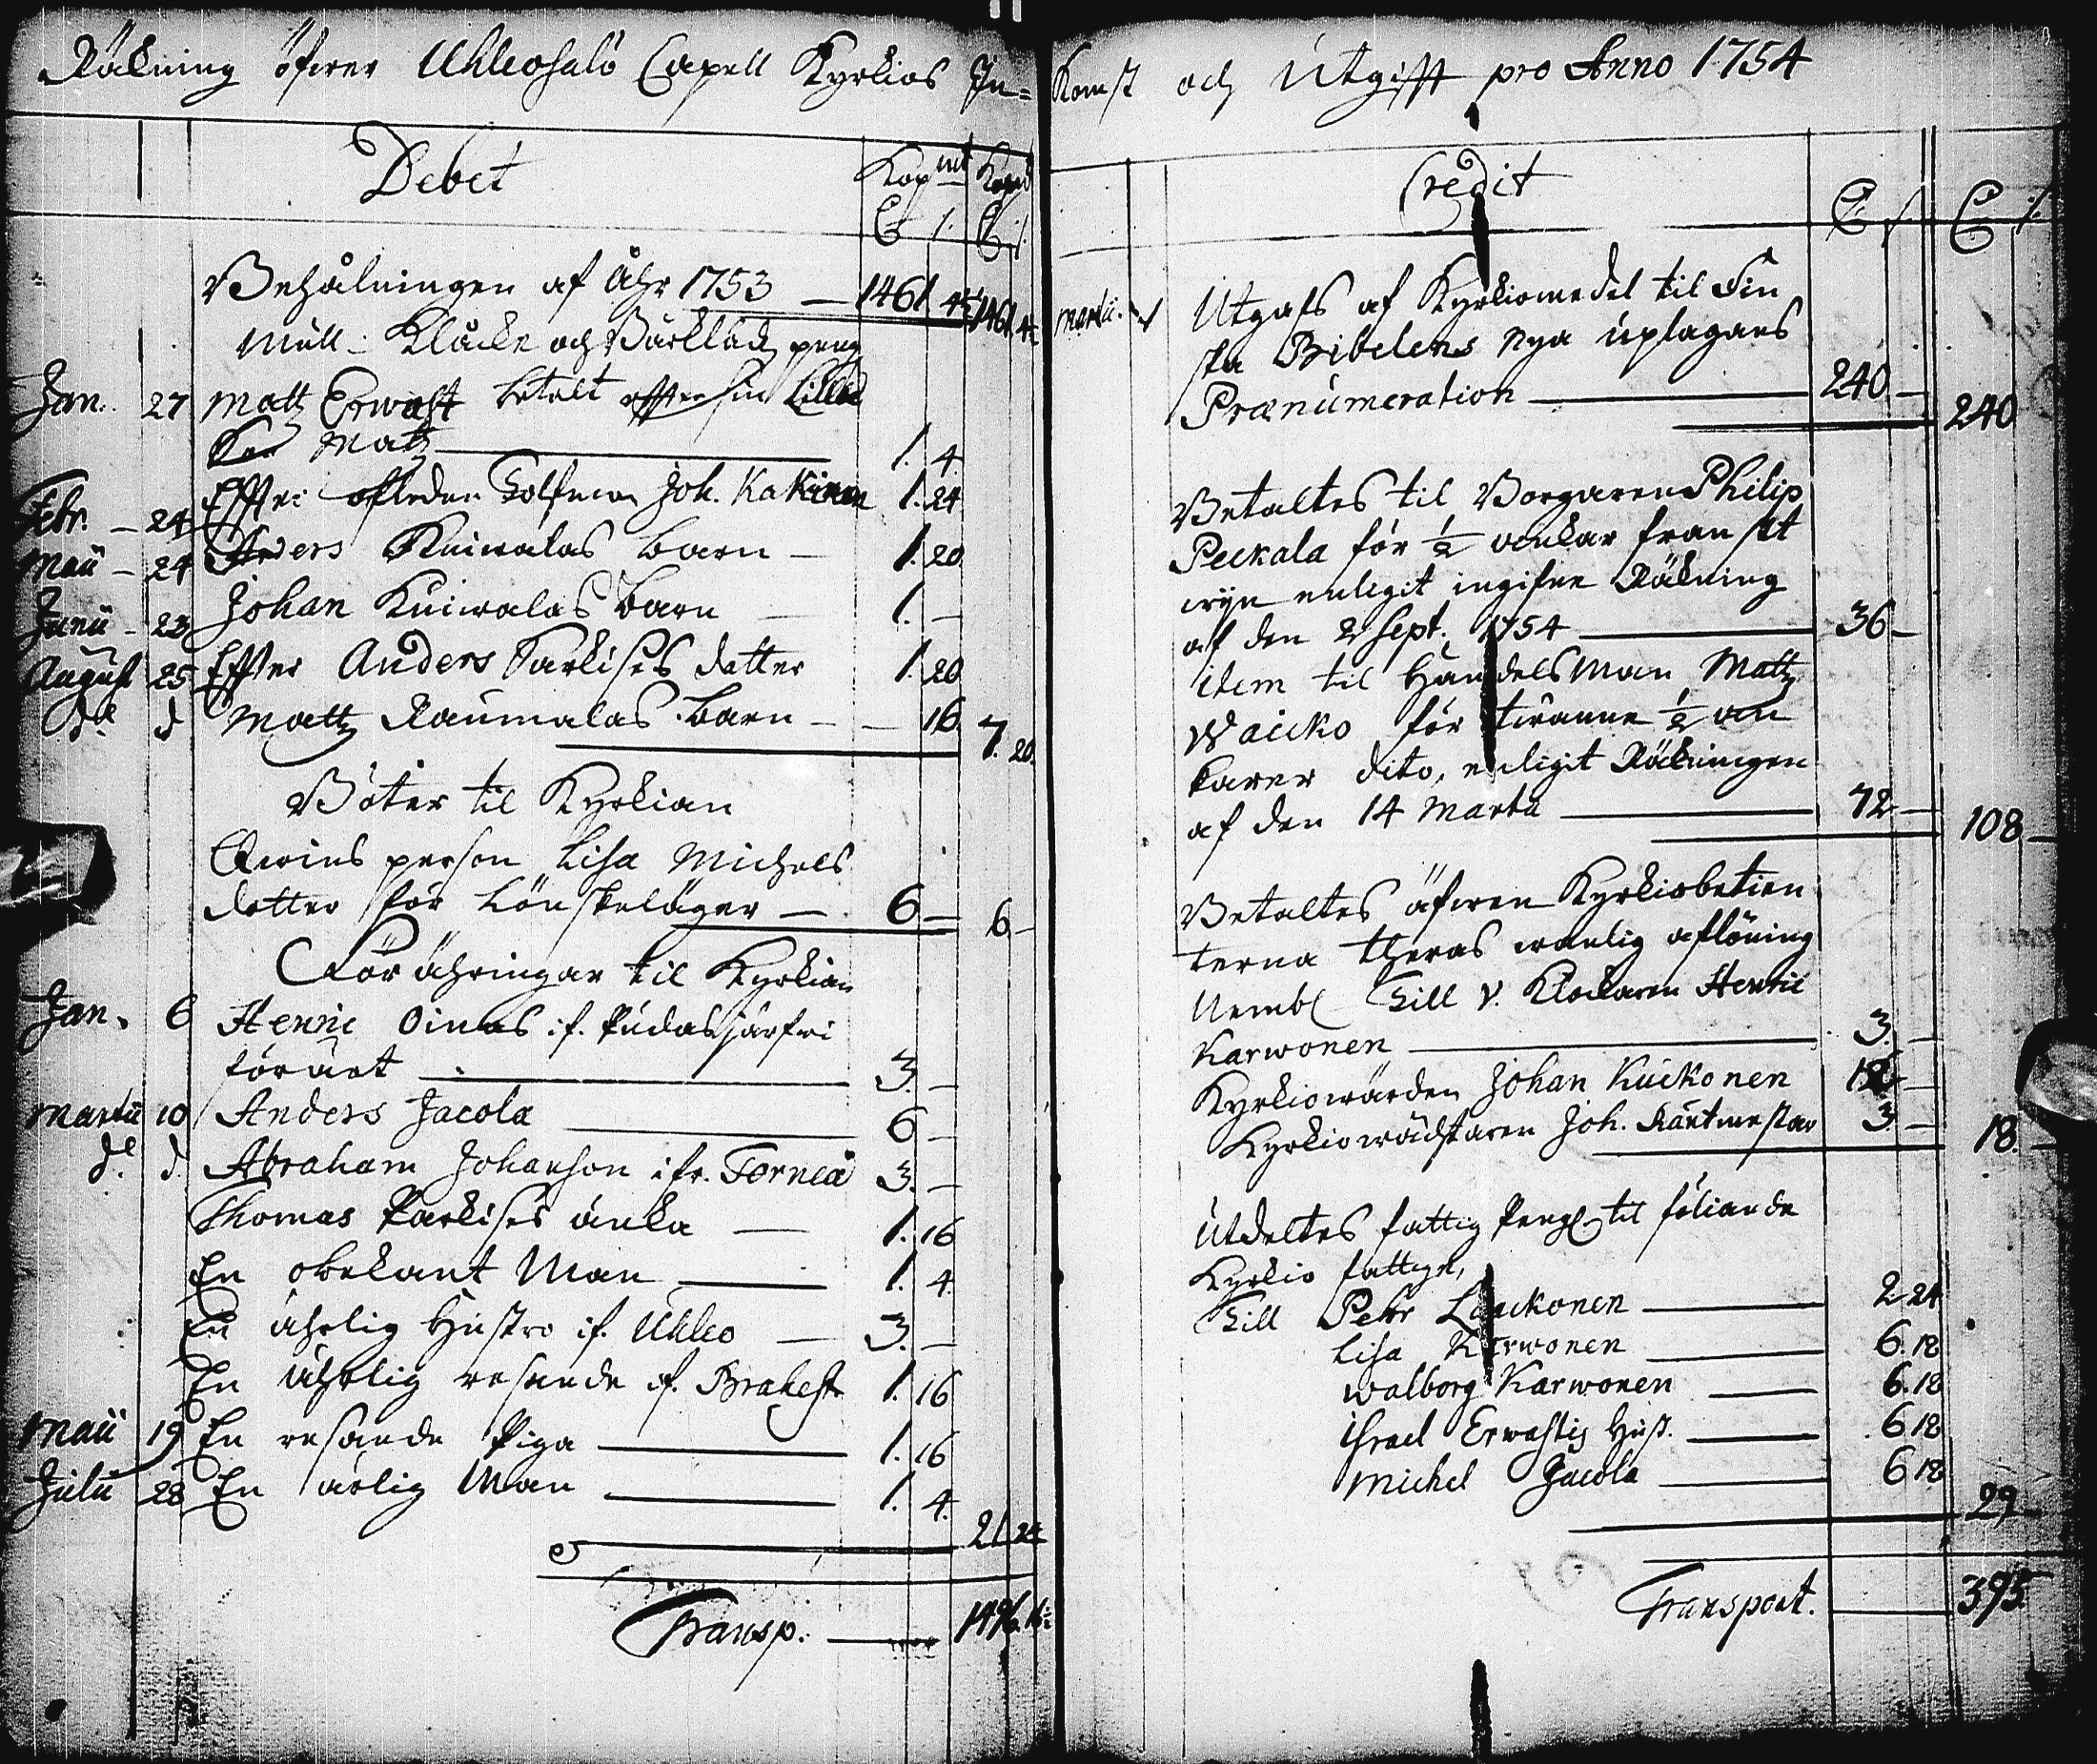 Räkning öfwer Uhleosalo Capell Kyrkios In=
Debet
Kop mt Kop mt
Behålningen af åhr 1753 — 1461 4½ 1461 4½
Mull- Klåcke och Bårkläds peng
Jan. 27 Matz Erwast betalt effter sin lilla
Son Matz — 1. 4.
Febr. — 24 Effter afledne Joh. Kakinen 1. 24
Maii — 24 Anders Kuiwalas barn — 1. 20
Junii - 23 Johan Kuiwalas barn — 1. —
August 25 Effter Anders Sarkises dotter 1. 20
do d Mattz Raumalas barn — — 16. 7. 20.
Böter til Kyrkian
Qwins person Lisa Michels
dotter för Lönskeläger — 6 — 6 —
Förähringar til Kyrkian
Jan. 6 Henric Oinas if. Pudasjärfwi
förärt — 3. —
Martii 10 Anders Jacola — 6 —
do d. Abraham Johanson ifr. Torneå 3. —
Thomas Parkises änka — 1. 16
En obekant Man — 1. 4.
En ährlig Hustro if. Uhleo — 3. —
En ährlig resande if. Brahest. 1. 16
Maii 19 En resande Piga — 1. 16
Julii 28 En ärlig Man — 1. 4.
21 24
Transp: — 1496. 16½
Komst och Utgifft pro Anno 1754
Credit
Martii. Utgafs af Kyrkiomedel til Fin
ska Bibelens nya uplagans
Prænumeration — 240 — 240
Betaltes til Borgaren Philip
Peckala för ½ anckar franskt
wijn enligit ingifne Räkning
af den 2 Sept. 1754 — 36 —
item til HandelsMan Mattz
Waicko för twänne ½ an
karer dito, enligit Räkningen
af den 14 Martii — 72 — 108 —
Betaltes äfwen Kyrkiobetien
terna theras wanlig aflöning
Neml Till v. Klockaren Henric
Karwonen — 3. —
Kyrkiowärden Johan Kuckonen 12 —
Kyrkiowächtaren Joh. Räntmestar 3 — 18. —
Utdeltes fattig Pengr til föliande
Kyrkio fattige,
Till Petr Lauckonen — 2 24
Lisa Karwonen — 6. 18
Walborg Karwonen — 6. 18
Israel Erwastis Hust. — 6 18
Michel Jacola — 6 18
29 —
Transport. — 395